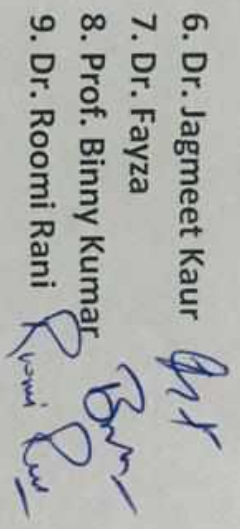 6. Dr. Jagmeet Kaur
7. Dr. Fayza
8. Prof. Binny Kumar
9. Dr. Roomi Rani Roomi Rani